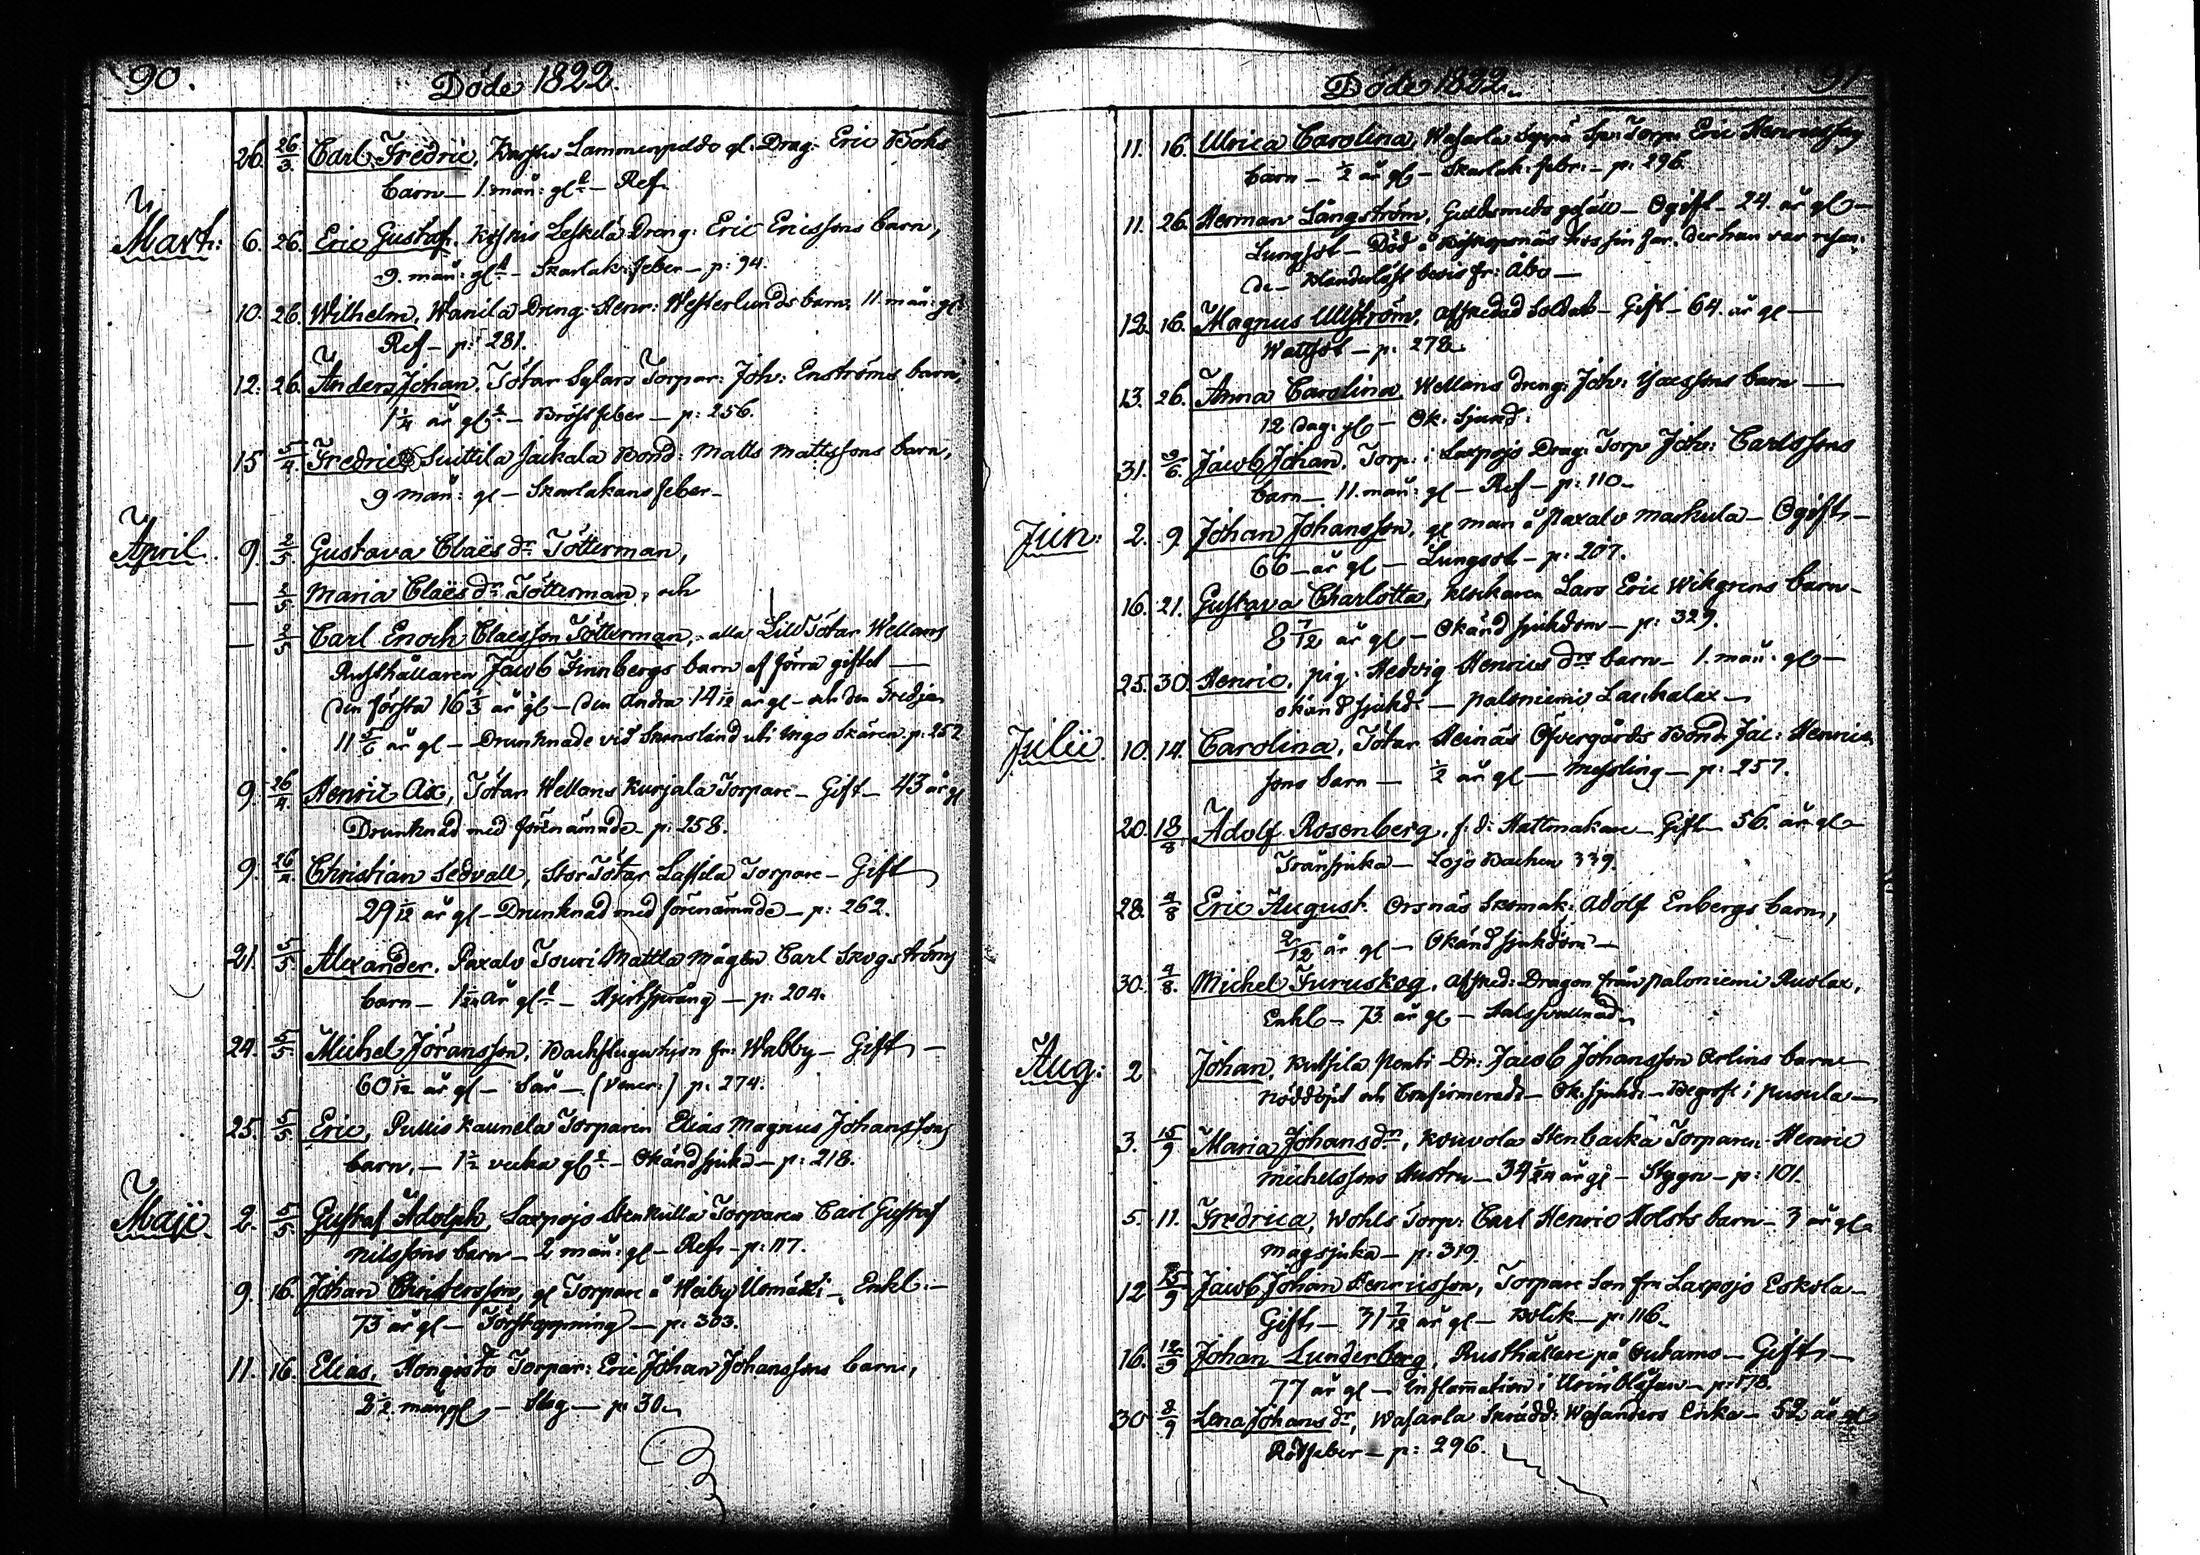 90.
Döde 1822.
26. 26/3. Carl Fredric, Lammenpeldo gl. Drag: Eric Bohs
barn — 1. mån: gl — Ref.
Mart: 6. 26. Eric Gustaf. Koskis Leskelä Dreng: Eric Ericssons barn,
9. mån: gl — Skarlak: feber — p: 94.
10. 26. Wilhelm, Wanila Dreng: Henr: Westerlunds barn, 11. mån: gl
Ref — p: 281.
12. 26. Anders Johan, Tötar Sylars Torpar: Joh: Enströms barn,
1 1/4 år gl — Bröstfeber — p: 256.
15 5/4. Fredric Suittila Jaikala Bond: Matts Mattssons barn,
9 mån: gl — Skarlakansfeber —
April. 9. 2/5 Gustava Claës dr Tötterman,
— 2/5 Maria Claës dr Tötterman, och
— 2/5 Carl Enoch Claesson Tötterman, alla Lill Tötar Wellans
Rusthållaren Jacob Finnbergs barn af förra giftet —
den första 16 1/3 år gl — den andra 14 1/12 år gl — och den tredje
11 5/6 år gl — Drunknade vid uti Ingo Skären. p: 257
9. 26/4 Henric Ax, Tötar Wellans Kurjala Torpare — Gift — 43 år gl
Drunknad med förenämnde — p: 258.
9. 26/4 Christian Sedvall, Stor Tötar Lassila Torpare — Gift
29 1/12 år gl — Drunknad med förenämnde — p: 262.
21. 5/5. Alexander. Paxalo Jouri Mattla Mågen Carl Skogströms
barn — år gl — Hjertsprång — p: 204.
24. 5/5. Michel Jöransson, Backstugu fr: Wabby — Gift —
60 1/12 år gl — Sår — (Vener:) p: 274.
25. 5/5. Eric, Pullis Kaunela Torparen Elias Magnus Johanssons
barn, — 1 1/2 vecka gl — Okänd sjukd — p: 218.
Maji. 2. 5/5. Gustaf Adolph Laxpojo Stenkulla Torparen Carl Gustaf
Nilssons barn — 2 mån: gl — Ref. — p: 117.
9. 16. Johan Christersson, gl Torpare å Heiby — Enkl: —
73 år gl — Förstoppning — p: 303.
11. 16. Elias, Hongisto Torpar: Eric Johan Johanssons barn,
2 1/2 mån gl — Slag — p 30.
91
Döde 1822.
11. 16. Ulrica Carolina, Wasarla Torp: Eric Henricssons
barn — 1/2 år gl — Skarlak: febr: — p: 296.
11. 26. Herman Långström, Guldsmeds gesäll — Ogift — 24. år gl —
Lungsot — Död å Biskopsnäs hos sin far, der han var resan:
de — bevis fr: Åbo —
12. 16. Magnus Ullström, afskedad Soldat — Gift — 64. år gl —
Wattsot — p: 278.
13. 26. Anna Carolina, Wellans dreng: Joh: Isacssons barn —
12 dag: gl — Ok: Sjukd:
31. 9/6. Jacob Johan, Torp: i Laxpojo Drag: Torp Joh: Carlssons
barn — 11. mån: gl — Ref — p: 110 —
Jun: 2. 9. Johan Johansson, gl man å Paxalo Markula — Ogift —
66 — år gl — Lungsot — p: 207.
16. 21. Gustava Charlotta, Klockaren Lars Eric Wikgrens barn —
8 7/12 år gl — Okänd sjukdom — p: 329.
25. 30. Henric, pig: Hedvig Henrics drs barn — 1. mån: gl —
okänd sjukd: — Paloniemi Laukalax —
Julii. 10. 14. Carolina, Tötar Heinäs Öfvergårds Bond: Jac: Henrics
sons barn — 1/2 år gl — Messling — p: 257.
20. 18/8 Adolf Rosenberg, f: d: Hattmakare — Gift — 56. år gl —
Transjuka — Lojo Backen 339.
28. 4/8 Eric August. Orsnäs Skomak: Adolf Enbergs barn,
2/12 år gl — Okänd sjukdom —
30. 4/8. Michel Furuskog, afsked: Dragon från Paloniemi Ruolax,
Enkl — 73. år gl — Halssvullnad
Aug: 2 Johan, Kutsila Pentti Dr: Jacob Johansson Orlins barn
Nöddöpt och Confirmerad — Ok: sjukd: — Begrafs i Pusula —
3. 15/9 Maria Johans dr, Kouvola Stenbacka Torparen Henric
Michelssons Hustru — 34 1/24 år gl — Stygn — p: 101.
5. 11. Fredrica, Wohls Torp: Carl Henric Holsts barn — 3 år gl
Magsjuka — p: 319.
12 15/9 Jacob Johan Henricsson, Torpare Son fr Laxpojo Eskola —
Gift — 31 7/12 år gl — Kolik — p: 116.
16. 12/9 Johan Lunderberg, Rusthållare på Outamo — Gift —
77 år gl — Inflamation i Urinblåsan — p: 178.
30 8/9 Lena Johans dr, Wasarla Skrädd: Wasanders Enka — 52 år gl
Rötfeber — p: 296.